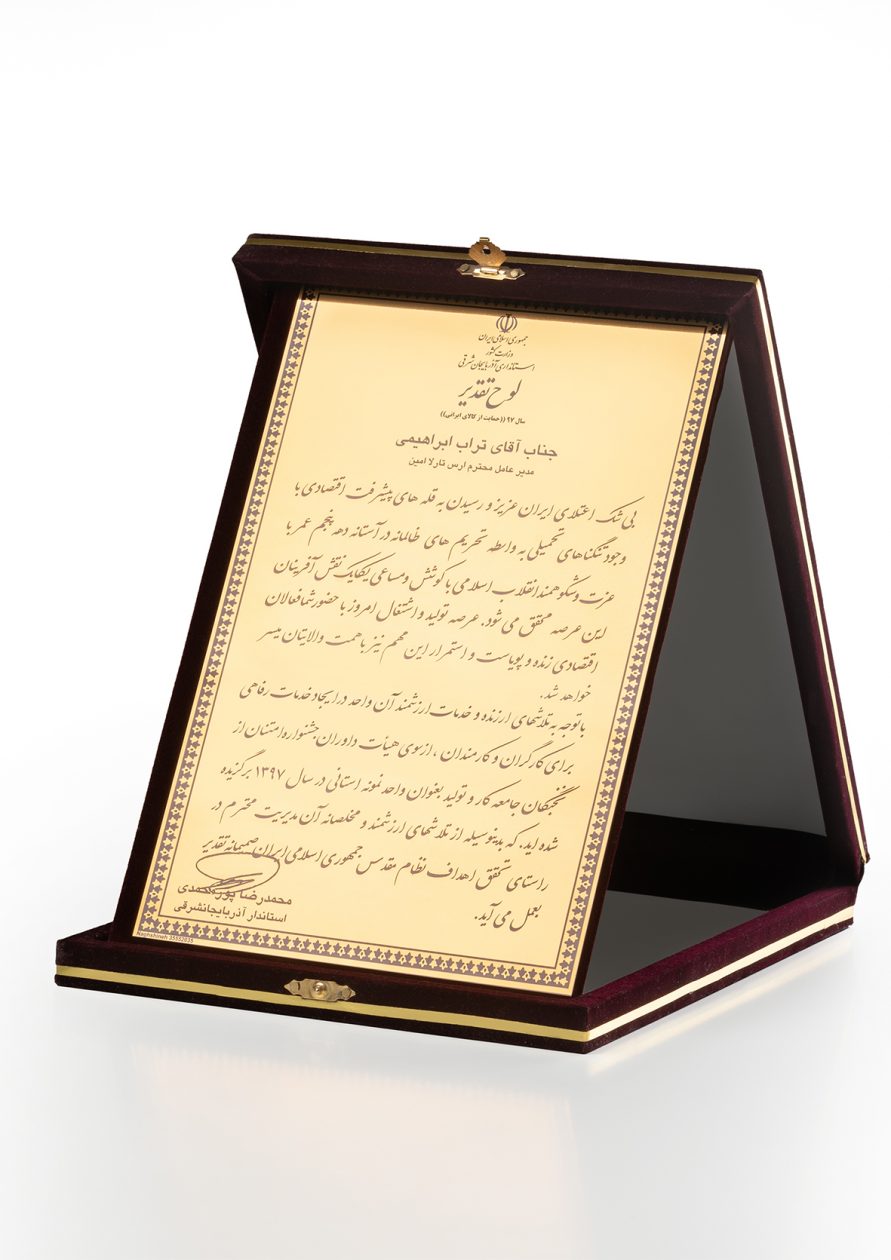 جمهوری اسلامی ایران
وزارت کشور
استانداری آذربایجان شرقی
لوح تقدیر
سال ۹۷ ((حمایت از کالای ایرانی))
جناب آقای تراب ابراهیمی
مدیر عامل محترم ارس تارلا امین
بی شک اعتلای ایران عزیز و رسیدن به قله های پیشرفت اقتصادی با
وجود تنگناهای تحمیلی به واسطه تحریم های ظالمانه در آستانه دهه پنجم عمر با
عزت و شکوهمند انقلاب اسلامی با کوشش و مساعی یکایک نقش آفرینان
این عرصه محقق می شود. عرصه تولید و اشتغال امروز با حضور شما فعالان
اقتصادی زنده و پویاست و استمرار این مهم نیز با همت والایتان میسر
خواهد شد.
با توجه به تلاشهای ارزنده و خدمات ارزشمند آن واحد در ایجاد خدمات رفاهی
برای کارگران و کارمندان ، از سوی هیأت داوران جشنواره امتنان از
نخبگان جامعه کار و تولید بعنوان واحد نمونه استانی در سال ۱۳۹۷ برگزیده
شده اید. که بدینوسیله از تلاشهای ارزشمند و مخلصانه آن مدیریت محترم در
راستای تحقق اهداف نظام مقدس جمهوری اسلامی ایران صمیمانه تقدیر
بعمل می آید.
محمدرضا پورمحمدی
استاندار آذربایجانشرقی
Naghshineh 35572035